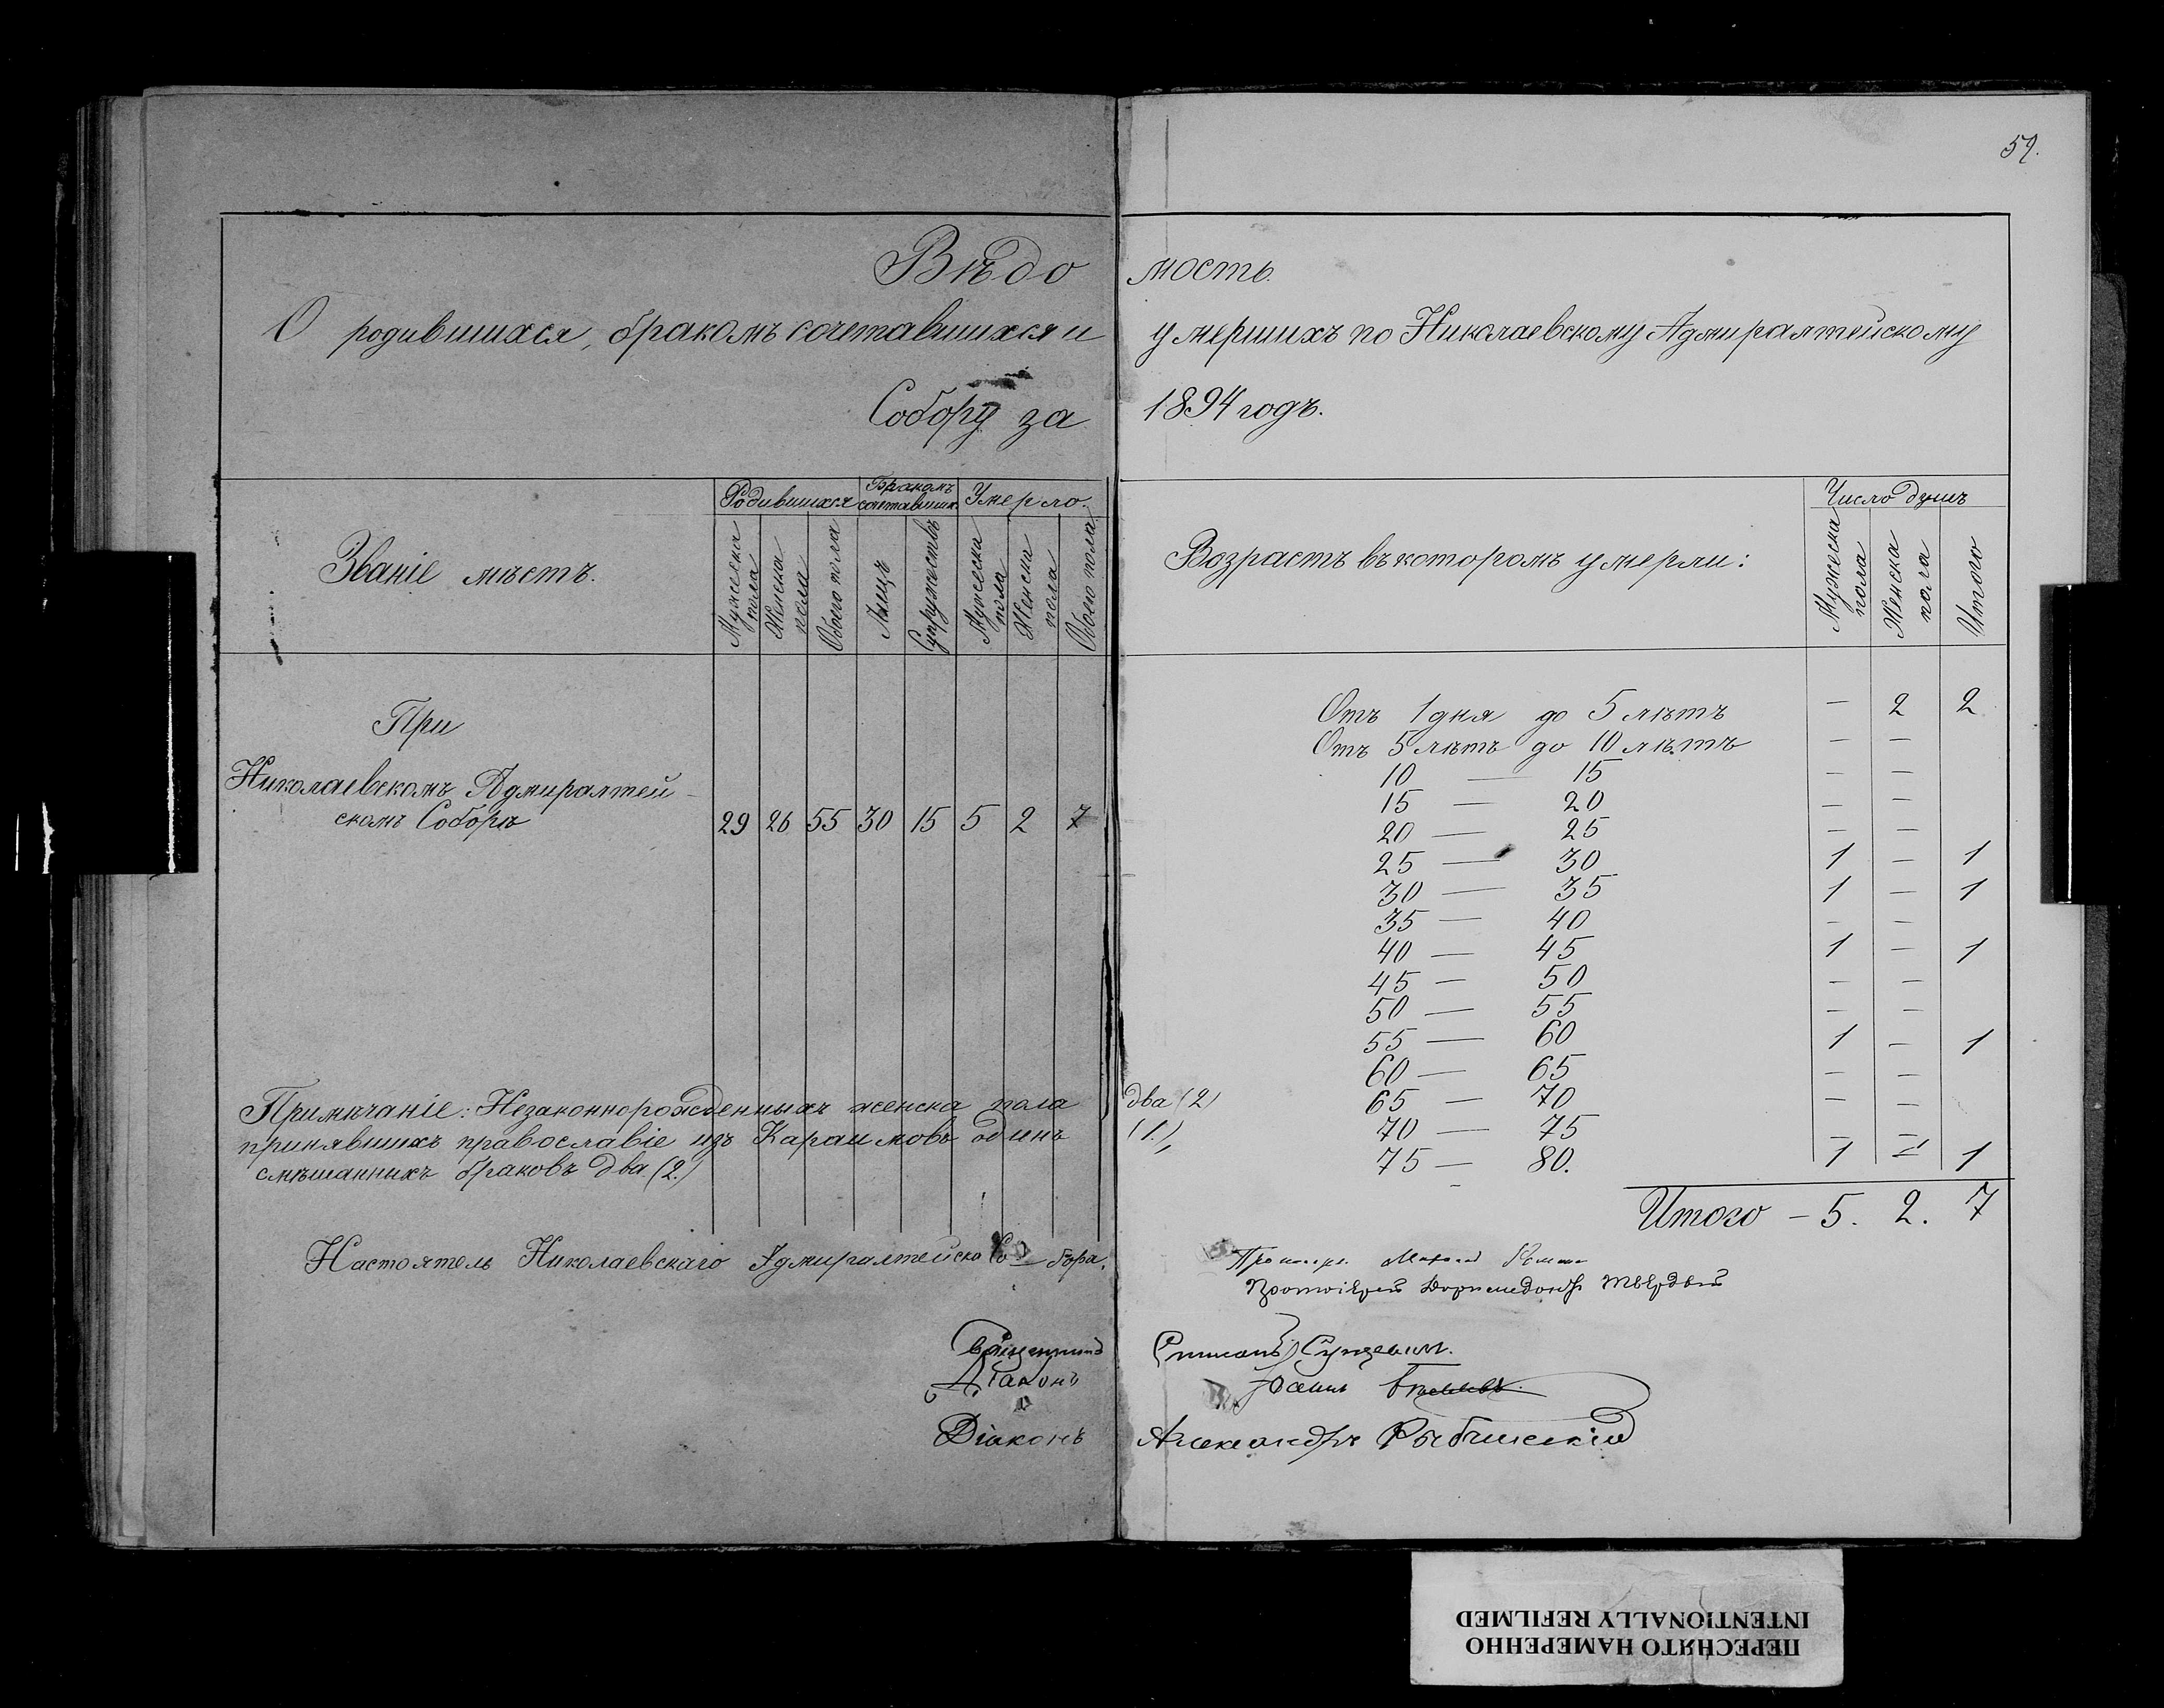 59.
Вѣдомость.
О родившихся, бракомъ сочетавшихся и умершихъ по Николаевскому Адмиралтейскому
Собору за 1894 годъ.
Званіе мѣстъ.
Родившихся
Бракомъ сочетавших.
Умерло.
Мужеска пола
Женска пола
Обоего пола
Лицъ
Супружествъ
Мужеска пола
Женска пола
Обоего пола
Возрастъ въ которомъ умерли:
Число душъ
Мужеска пола
Женска пола
Итого
При
Николаевскомъ Адмиралтей-
скомъ Соборѣ 29 26 55 30 15 5 2 7
Отъ 1 дня до 5 лѣтъ — 2 2
Отъ 5 лѣтъ до 10 лѣтъ — —
10 — 15 — —
15 — 20 — —
20 — 25 — —
25 — 30 1 — 1
30 — 35 1 — 1
35 — 40 — —
40 — 45 1 — 1
45 — 50 — —
50 — 55 — —
55 — 60 1 — 1
60 — 65 — —
65 — 70 — —
70 — 75 — —
75 — 80. 1 — 1
Итого — 5. 2. 7
Примѣчаніе: Незаконнорожденныхъ женска пола два (2)
принявшихъ православіе изъ Караимовъ одинъ (1.),
смѣшанныхъ браковъ два (2.)
Настоятель Николаевскаго Адмиралтейска Собора,
Протоіерей Доримедонтъ Твердый
Священникъ Стефанъ
Діаконъ
Діаконъ Александръ
ПЕРЕСНЯТО НАМЕРЕННО
INTENTIONALLY REFILMED